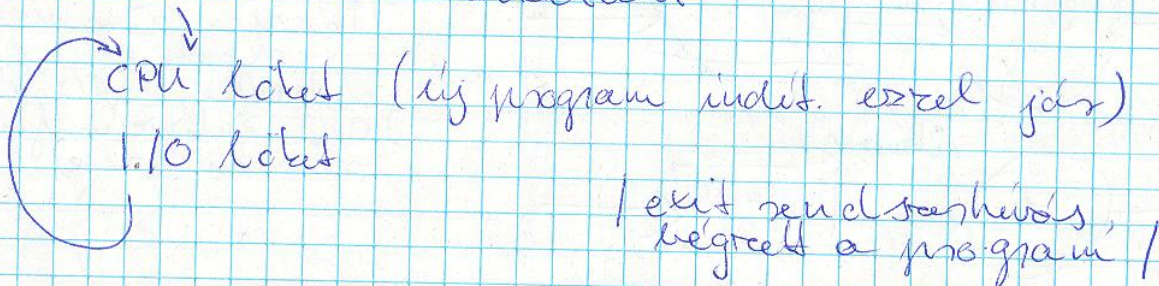 CPU löket (új program indít. ezzel jár)
I./O löket
/ exit rendszerhívás,
végzett a program /